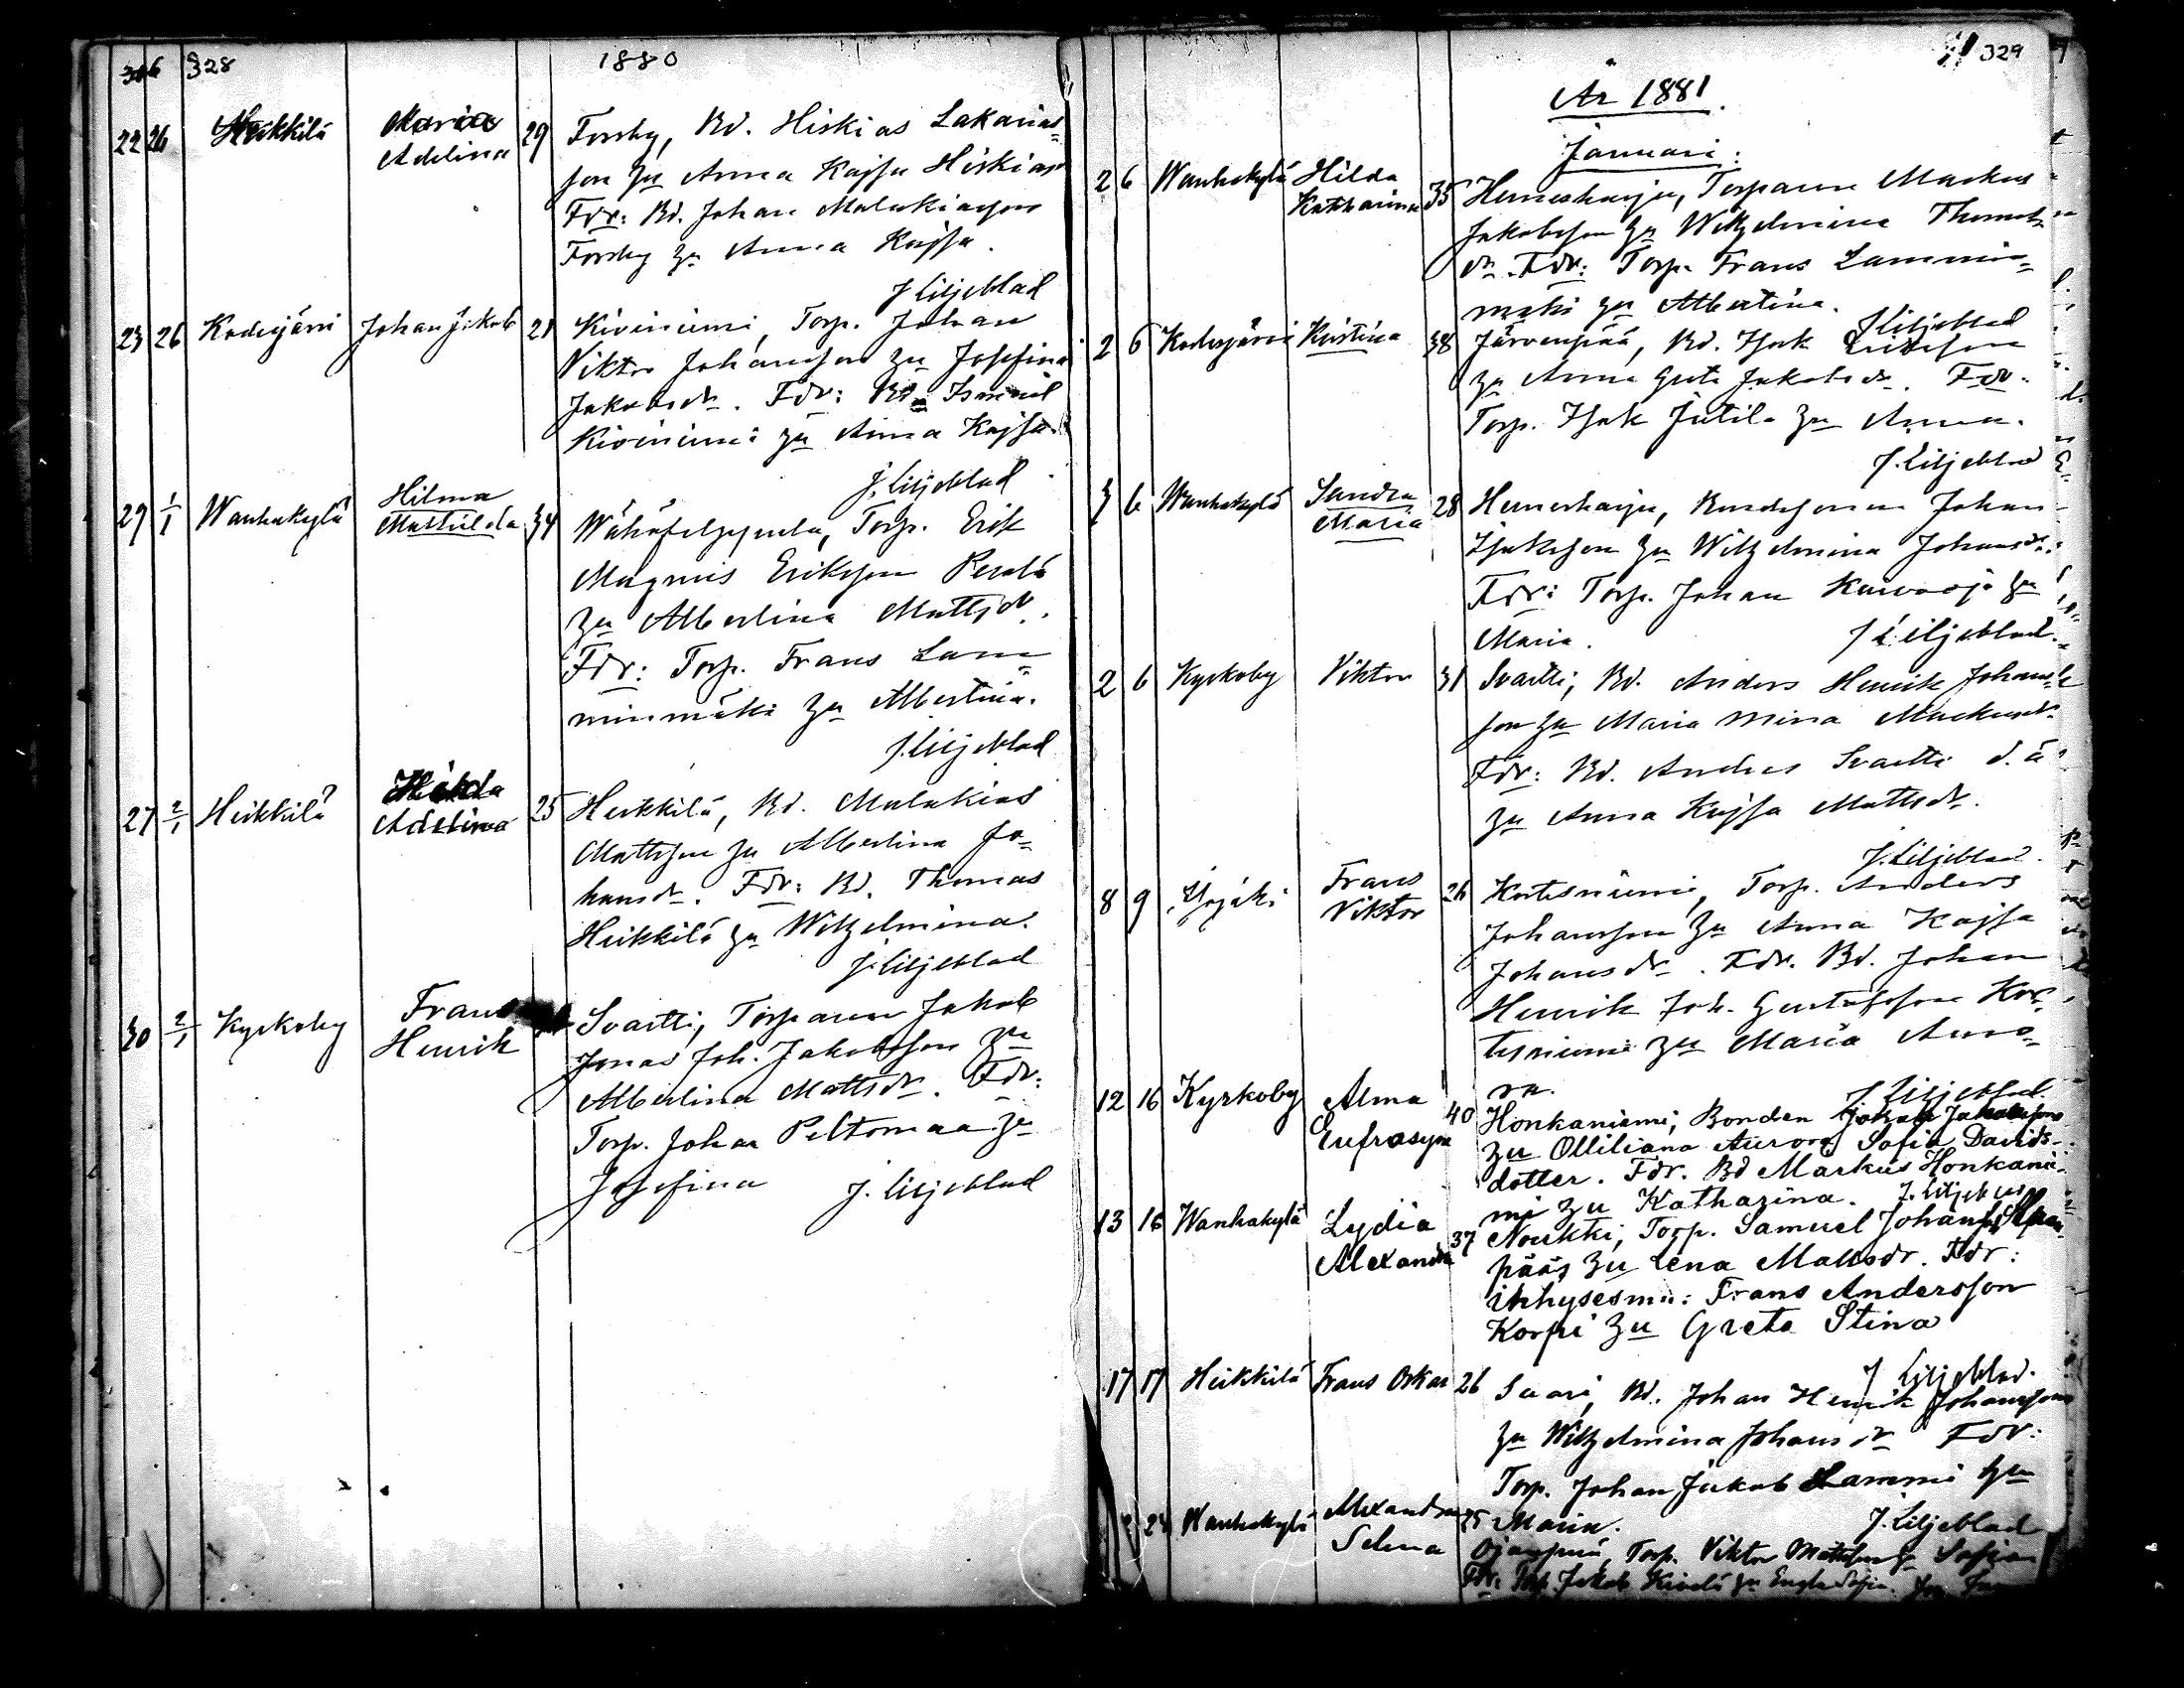 306 328 1880
22 26 Heikkilä Maria Adelina 29 Forsby, Bd. Hiskias Sakarias
son zu Anna Kajsa Hiskiasdr
Fdr: Bd. Johan Malakiasson
Forsby zu Anna Kajsa.
J Liljeblad
23 26 Kodesjärvi Johan Jakob 21 Kiviniemi, Torp. Johan
Viktor Johansson zu Josefina
Jakobsdr. Fdr: Bd. Ismael
Kiviniemi zu Anna Kajsa
J. Liljeblad
29 1/1 Wanhakylä Hilma Mathilda 34 Torp. Erik
Magnus Eriksson Perälä
zu Albertina Mattsdr.
Fdr: Torp. Frans Lam
minmäki zu Albertina.
J. Liljeblad
27 2/1 Heikkilä Adelina 25 Heikkilä, Bd. Malakias
Mattsson zu Albertina Jo-
hansdr. Fdr: Bd. Thomas
Heikkilä zu Wilhelmina.
J. Liljeblad
30 2/1 Kyrkoby Frans Henrik Svartti, Torparen Jakob
Jonas Joh. Jakobsson zu
Albertina Mattsdr. Fdr:
Torp. Johan Peltomaa zu
Josefina J. Liljeblad
329
År 1881.
Januari:
2 6 Wanhakylä Hilda Katharina 35 Hemesharju, Torparen Markus
Jakobsson zu Wilhelmina Thomas
dr. Fdr: Torp. Frans Lammin-
mäki zu Albertina.
J Liljeblad
2 6 Kodesjärvi Kristina 38 Järvenpää, Bd. Isak Eriksson
zu Anna Greta Jakobsdr. Fdr.
Torp. Isak Jutila zu Anna.
J. Liljeblad
3 6 Wanhakylä Sandra Maria 28 Hemesharju, Bondesonen Johan
Isaksson zu Wilhelmina Johansdr.
Fdr: Torp. Johan Kaivooja zu
Maria. J Liljeblad.
2 6 Kyrkoby Viktor 31 Svartti, Bd. Anders Henrik Johans-
son zu Maria Mina Markusdr.
Fdr: Bd. Anders Svartti d.ä
zu Anna Kajsa Mattsdr.
J. Liljeblad.
8 9 Frans Viktor 26 Kortesniemi, Torp. Anders
Johansson zu Anna Kajsa
Johansdr. Fdr. Bd. Johan
Henrik Joh. Gustafsson Kor-
tesniemi zu Maria Auro-
ra. J Liljeblad.
12 16 Kyrkoby Alma Eufrosyna 40 Honkaniemi, Bonden Jakobsson
zu Olliliana Aurora Sofia Davids-
dotter. Fdr. Bd Markus Honkanie-
mi zu Katharina. J. Liljeblad
13 16 Wanhakylä Lydia Alexandra 37 Noukki, Torp. Samuel Johansson
pää, zu Lena Mattsdr. Fdr:
inhysesm: Frans Andersson
Korpi zu Greta Stina
J Liljeblad.
17 17 Heikkilä Frans Oskar 26 Saari, Bd. Johan Henrik Johansson
zu Wilhelmina Johansdr Fdr:
Torp. Johan Jakob Lammi zu
Maria. J. Liljeblad
24 Wanhakylä Alexandra Selma 25 Ojanperä, Torp. Viktor Mattsson zu Sofia
Fdr: Torp. Jakob Kivelä zu Engla Sofia.